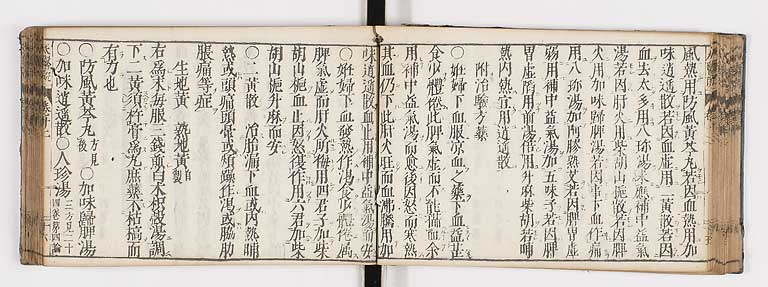 風熱用防風黃芩丸若因血熱用加
味逍遙散若因血虛用二黃散若因
血去太多用八珍湯未應補中益氣
湯若因肝火用柴胡山梔散若因脾
火用加味歸脾湯若因事下血作痛
用八珍湯加阿膠熟艾若因脾胃虛
弱用補中益氣湯加五味子若因脾
胃虛陷用前湯倍用升麻柴胡若晡
熱內熱宜用逍遙散
附治驗方藥
○妊婦下血服凉血之藥下血益甚
食少體倦此脾氣虛而不能攝血余
用補中益氣湯而愈後因怒而寒熱
其血仍下此肝火旺而血沸騰用加
味逍遙散血止用補中益氣湯而安
○妊婦下血發熱作渴食少體倦屬
脾氣虛而肝火所侮用四君子加柴
胡山梔血止因怒復作用六君加柴
胡山梔升麻而安
○二黃散 治胎漏下血或內熱晡
熱或頭痛頭暈或煩躁作渴或脇肋
脹痛等症
生地黃 熟地黃 製
右爲末每服三錢煎白朮枳殼湯調
下二黃須爲丸庶藥不枯槁而
有力也
○防風黃芩丸 方見後 ○加味歸脾湯
○加味逍遙散○八珍湯 三方見二十四卷第四論